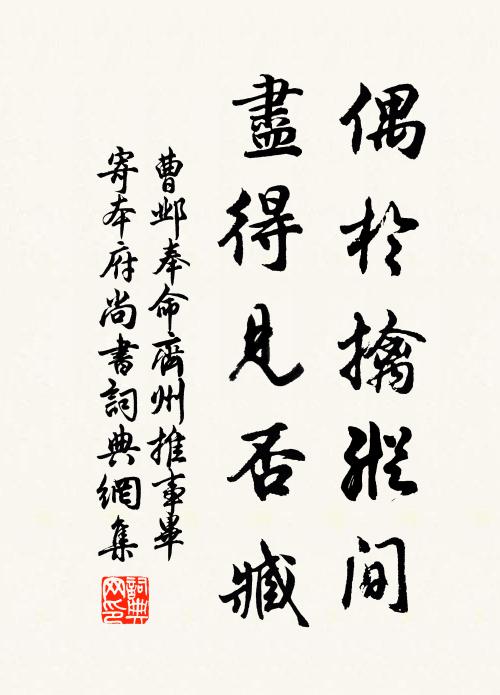 偶於擒縱間
盡得見否臧
曹鄴奉命齊州推事畢
寄本府尚書詞典網集
詞典網印